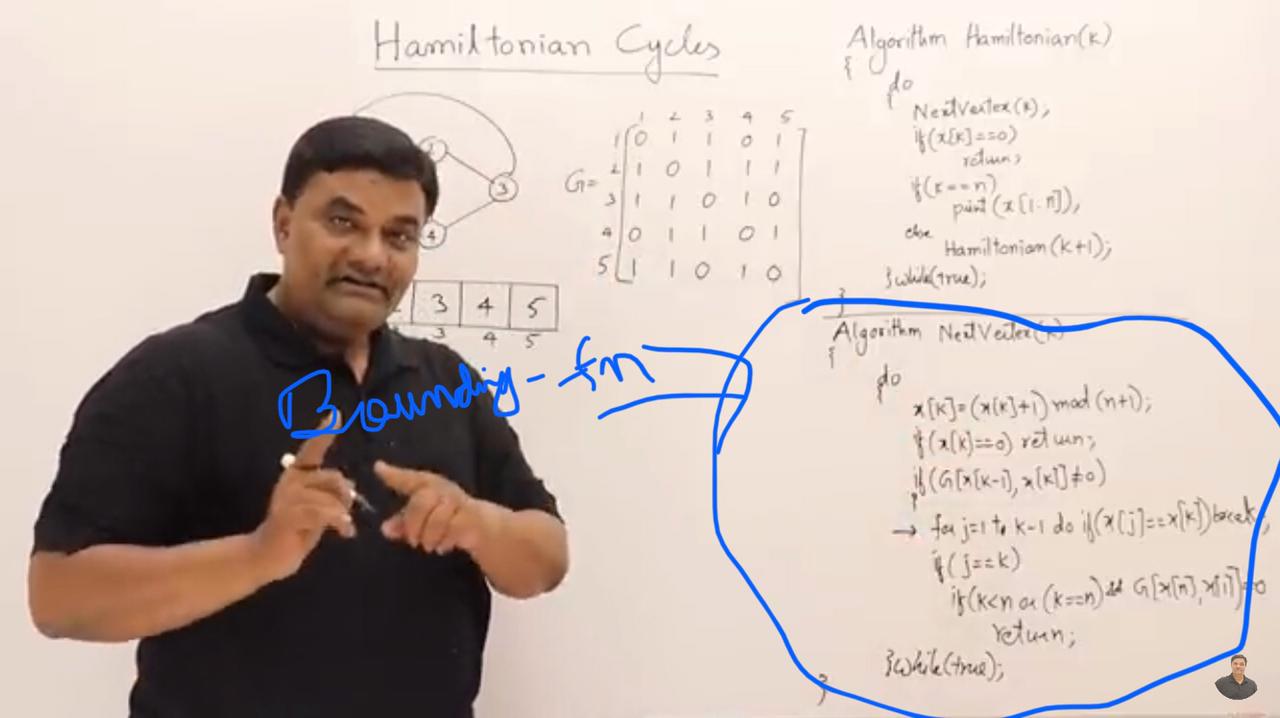 Hamiltonian Cycles
2
3
4
3 4 5
3 4 5
1 2 3 4 5
G=
1 0 1 1 0 1
2 1 0 1 1 1
3 1 1 0 1 0
4 0 1 1 0 1
5 1 1 0 1 0
Bounding - fn
Algorithm Hamiltonian(k)
{
do
{
NextVertex(k);
if(x[k]==0)
return;
if(k==n)
print(x[1:n]);
else
Hamiltonian(k+1);
}while(true);
}
Algorithm NextVertex(k)
{
do
{
x[k]=(x[k]+1) mod (n+1);
if(x[k]==0) return;
if(G[x[k-1],x[k]]≠0)
{
→ for j=1 to k-1 do if(x[j]==x[k]) break;
if(j==k)
if(k<n or (k==n) && G[x[n],x[1]]≠0
return;
}while(true);
}